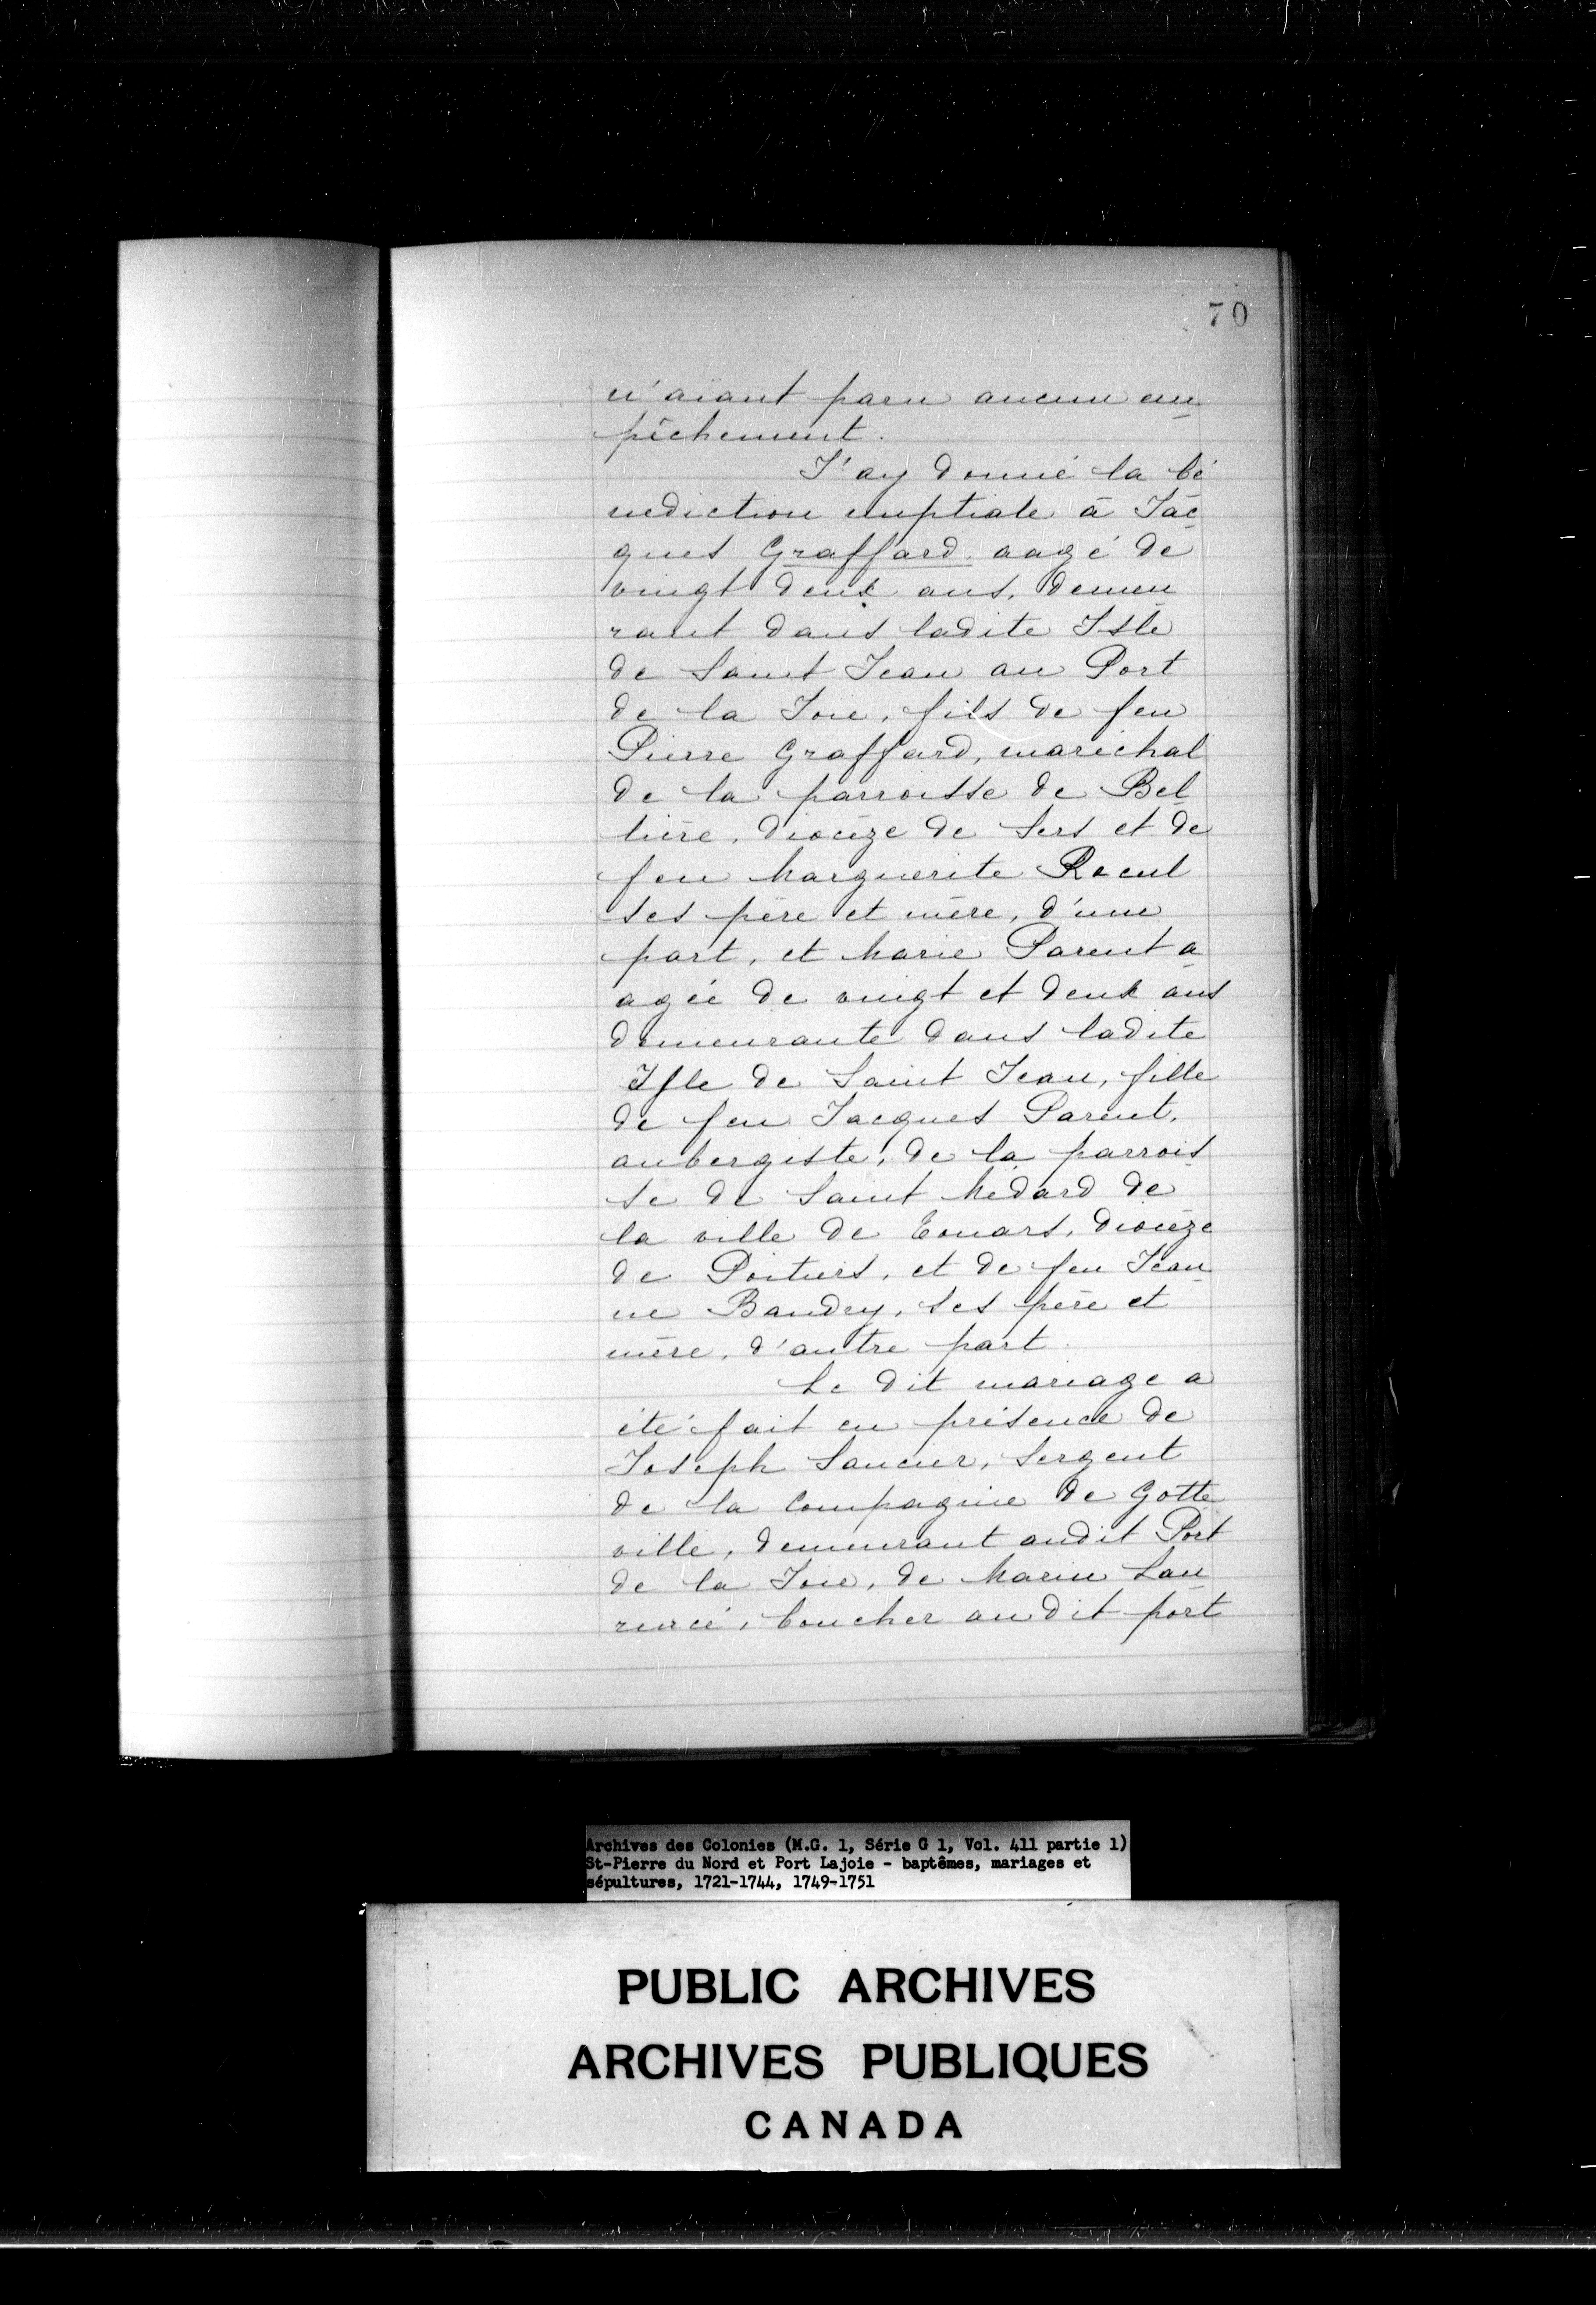 70
n'aiant paru aucun em
pêchement.
J'ay donné la bé
nediction nuptiale à Jac
ques Graffard, aagé de
vingt deux ans, demeu
rant dans ladite Isle
de Saint Jean au Port
de la Joie, fils de feu
Pierre Graffard, maréchal
de la parroisse de Bel
lière, diocèze de Sers et de
feu Marguerite Recul
ses père et mère, d'une
part, et Marie Parent a
agée de vingt et deux ans
demeurante dans ladite
Isle de Saint Jean, fille
de feu Jacques Parent,
aubergiste, de la parrois
se de Saint Médard de
la ville de Touars, diocèze
de Poitiers, et de feu Jean
ne Baudry, ses père et
mère, d'autre part.
Le dit mariage a
été fait en présence de
Joseph Saucier, Sergent
de la Compagnie de Gotte
ville, demeurant audit Port
de la Joie, de Marin Lau
rencé, boucher audit port
Archives des Colonies (M.G. 1, Série G 1, Vol. 411 partie 1)
St-Pierre du Nord et Port Lajoie - baptêmes, mariages et
sépultures, 1721-1744, 1749-1751
PUBLIC ARCHIVES
ARCHIVES PUBLIQUES
CANADA